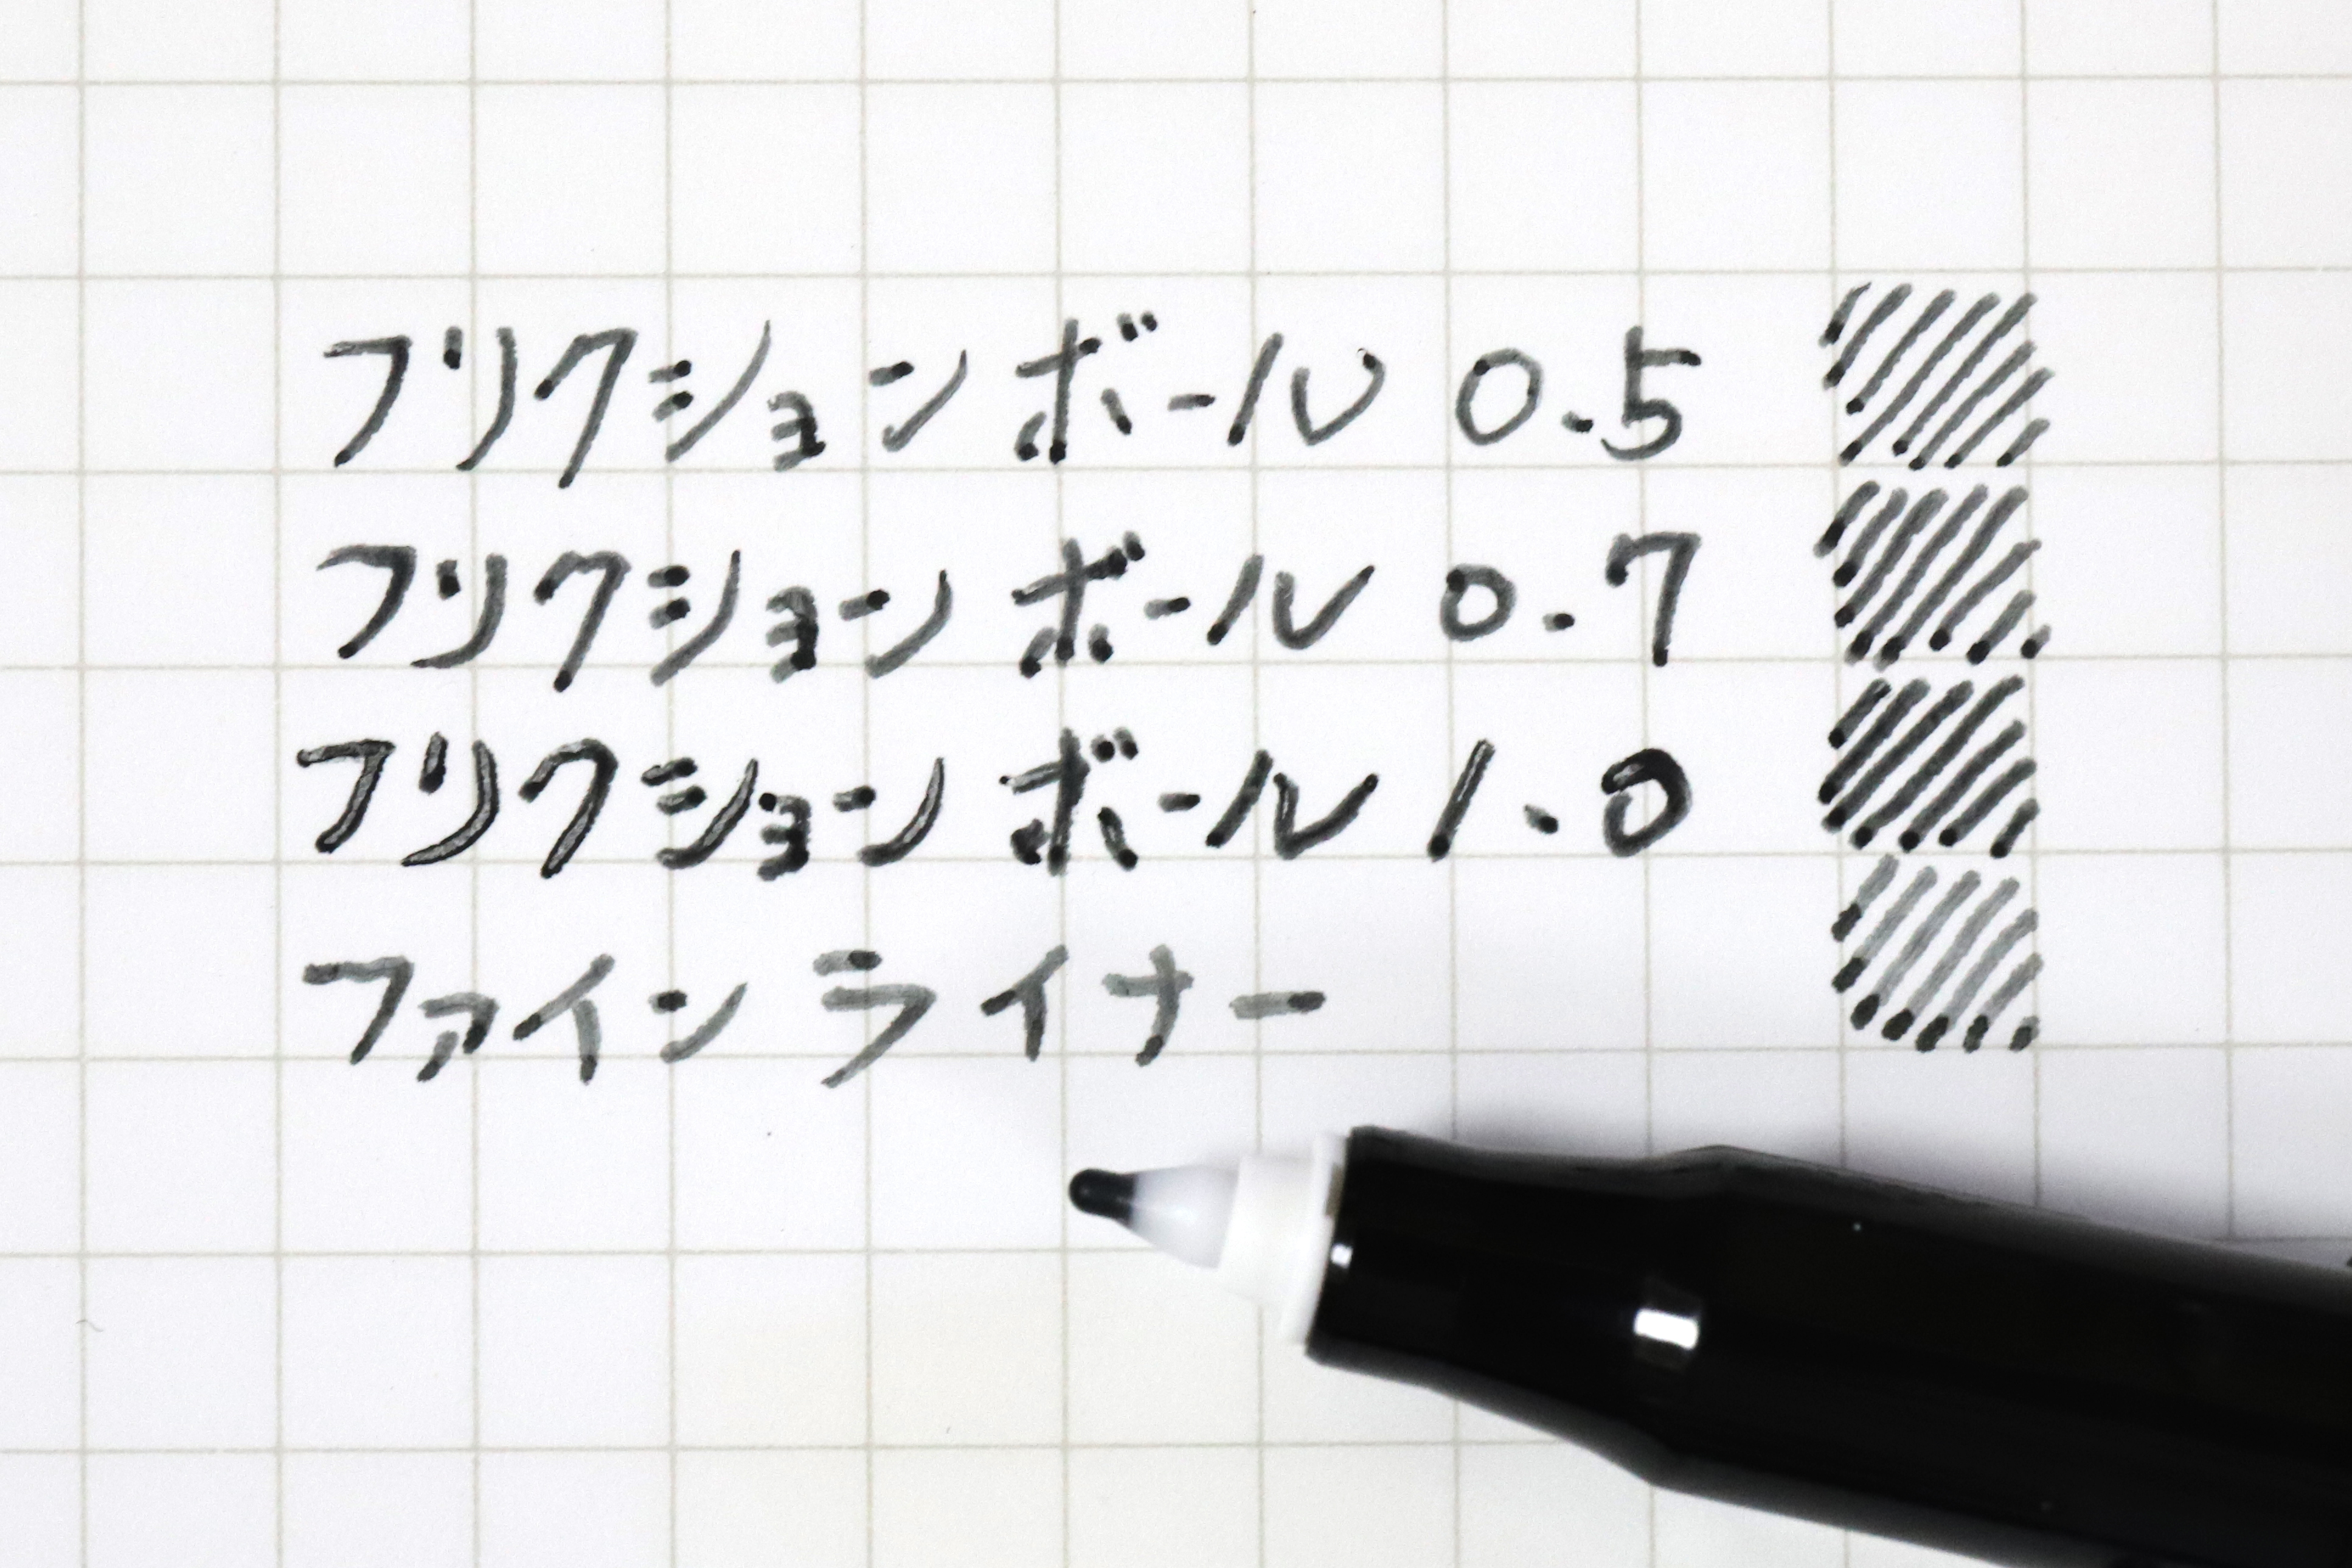 フリクションボール 0.5
フリクションボール 0.7
フリクションボール 1.0
ファインライナー